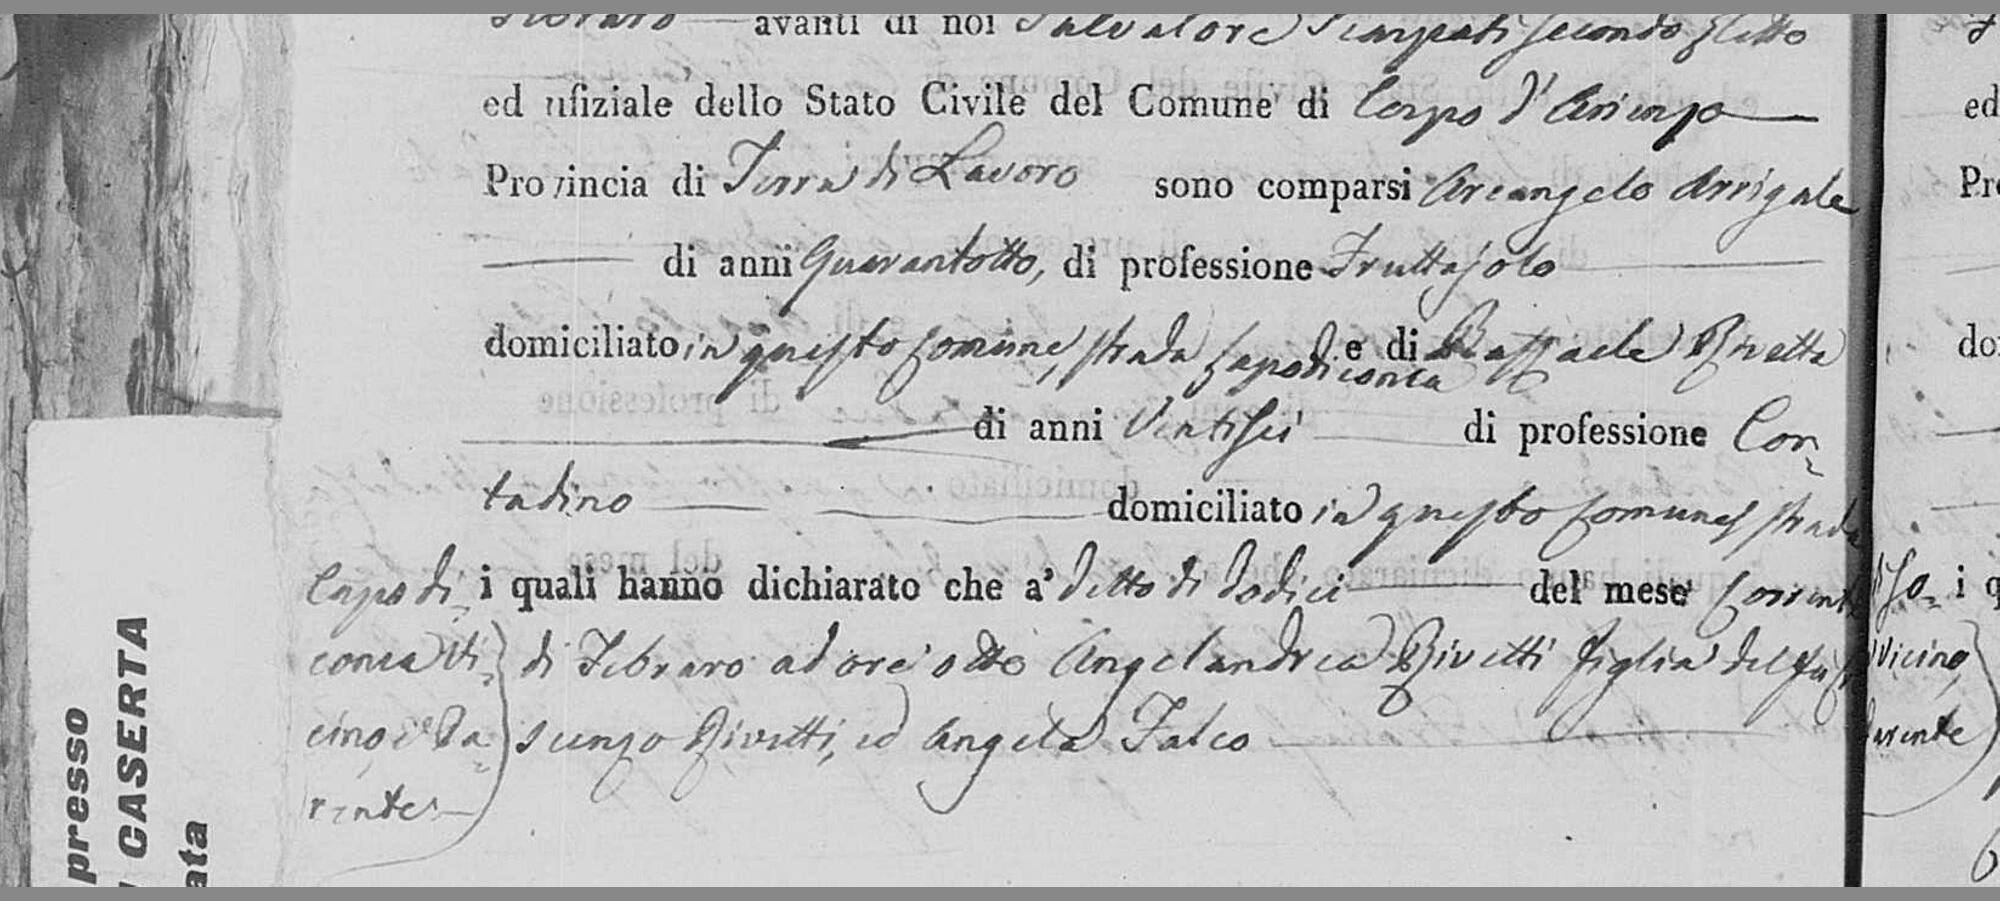 Febraro avanti di noi Salvatore Scarpati secondo Eletto
ed ufiziale dello Stato Civile del Comune di Corpo d'Arienzo
Provincia di Terra di Lavoro sono comparsi Arcangelo Arrigale
di anni Quarantotto, di professione Fruttajolo
domiciliato in questo Comune, strada Capodiconca e di Raffaele Rivetta
di anni Ventisei di professione Con-
tadino domiciliato in questo Comune strada
Capodi- i quali hanno dichiarato che a' detto di dodici del mese Corrente
conca Vi- di Febraro ad ore otto Angelandrea Rivetti figlia del fu
cino e Pa- scenzo Rivetti, ed Angela Falco
rente
presso
CASERTA
ata
ed
i q
Vicino
Parente